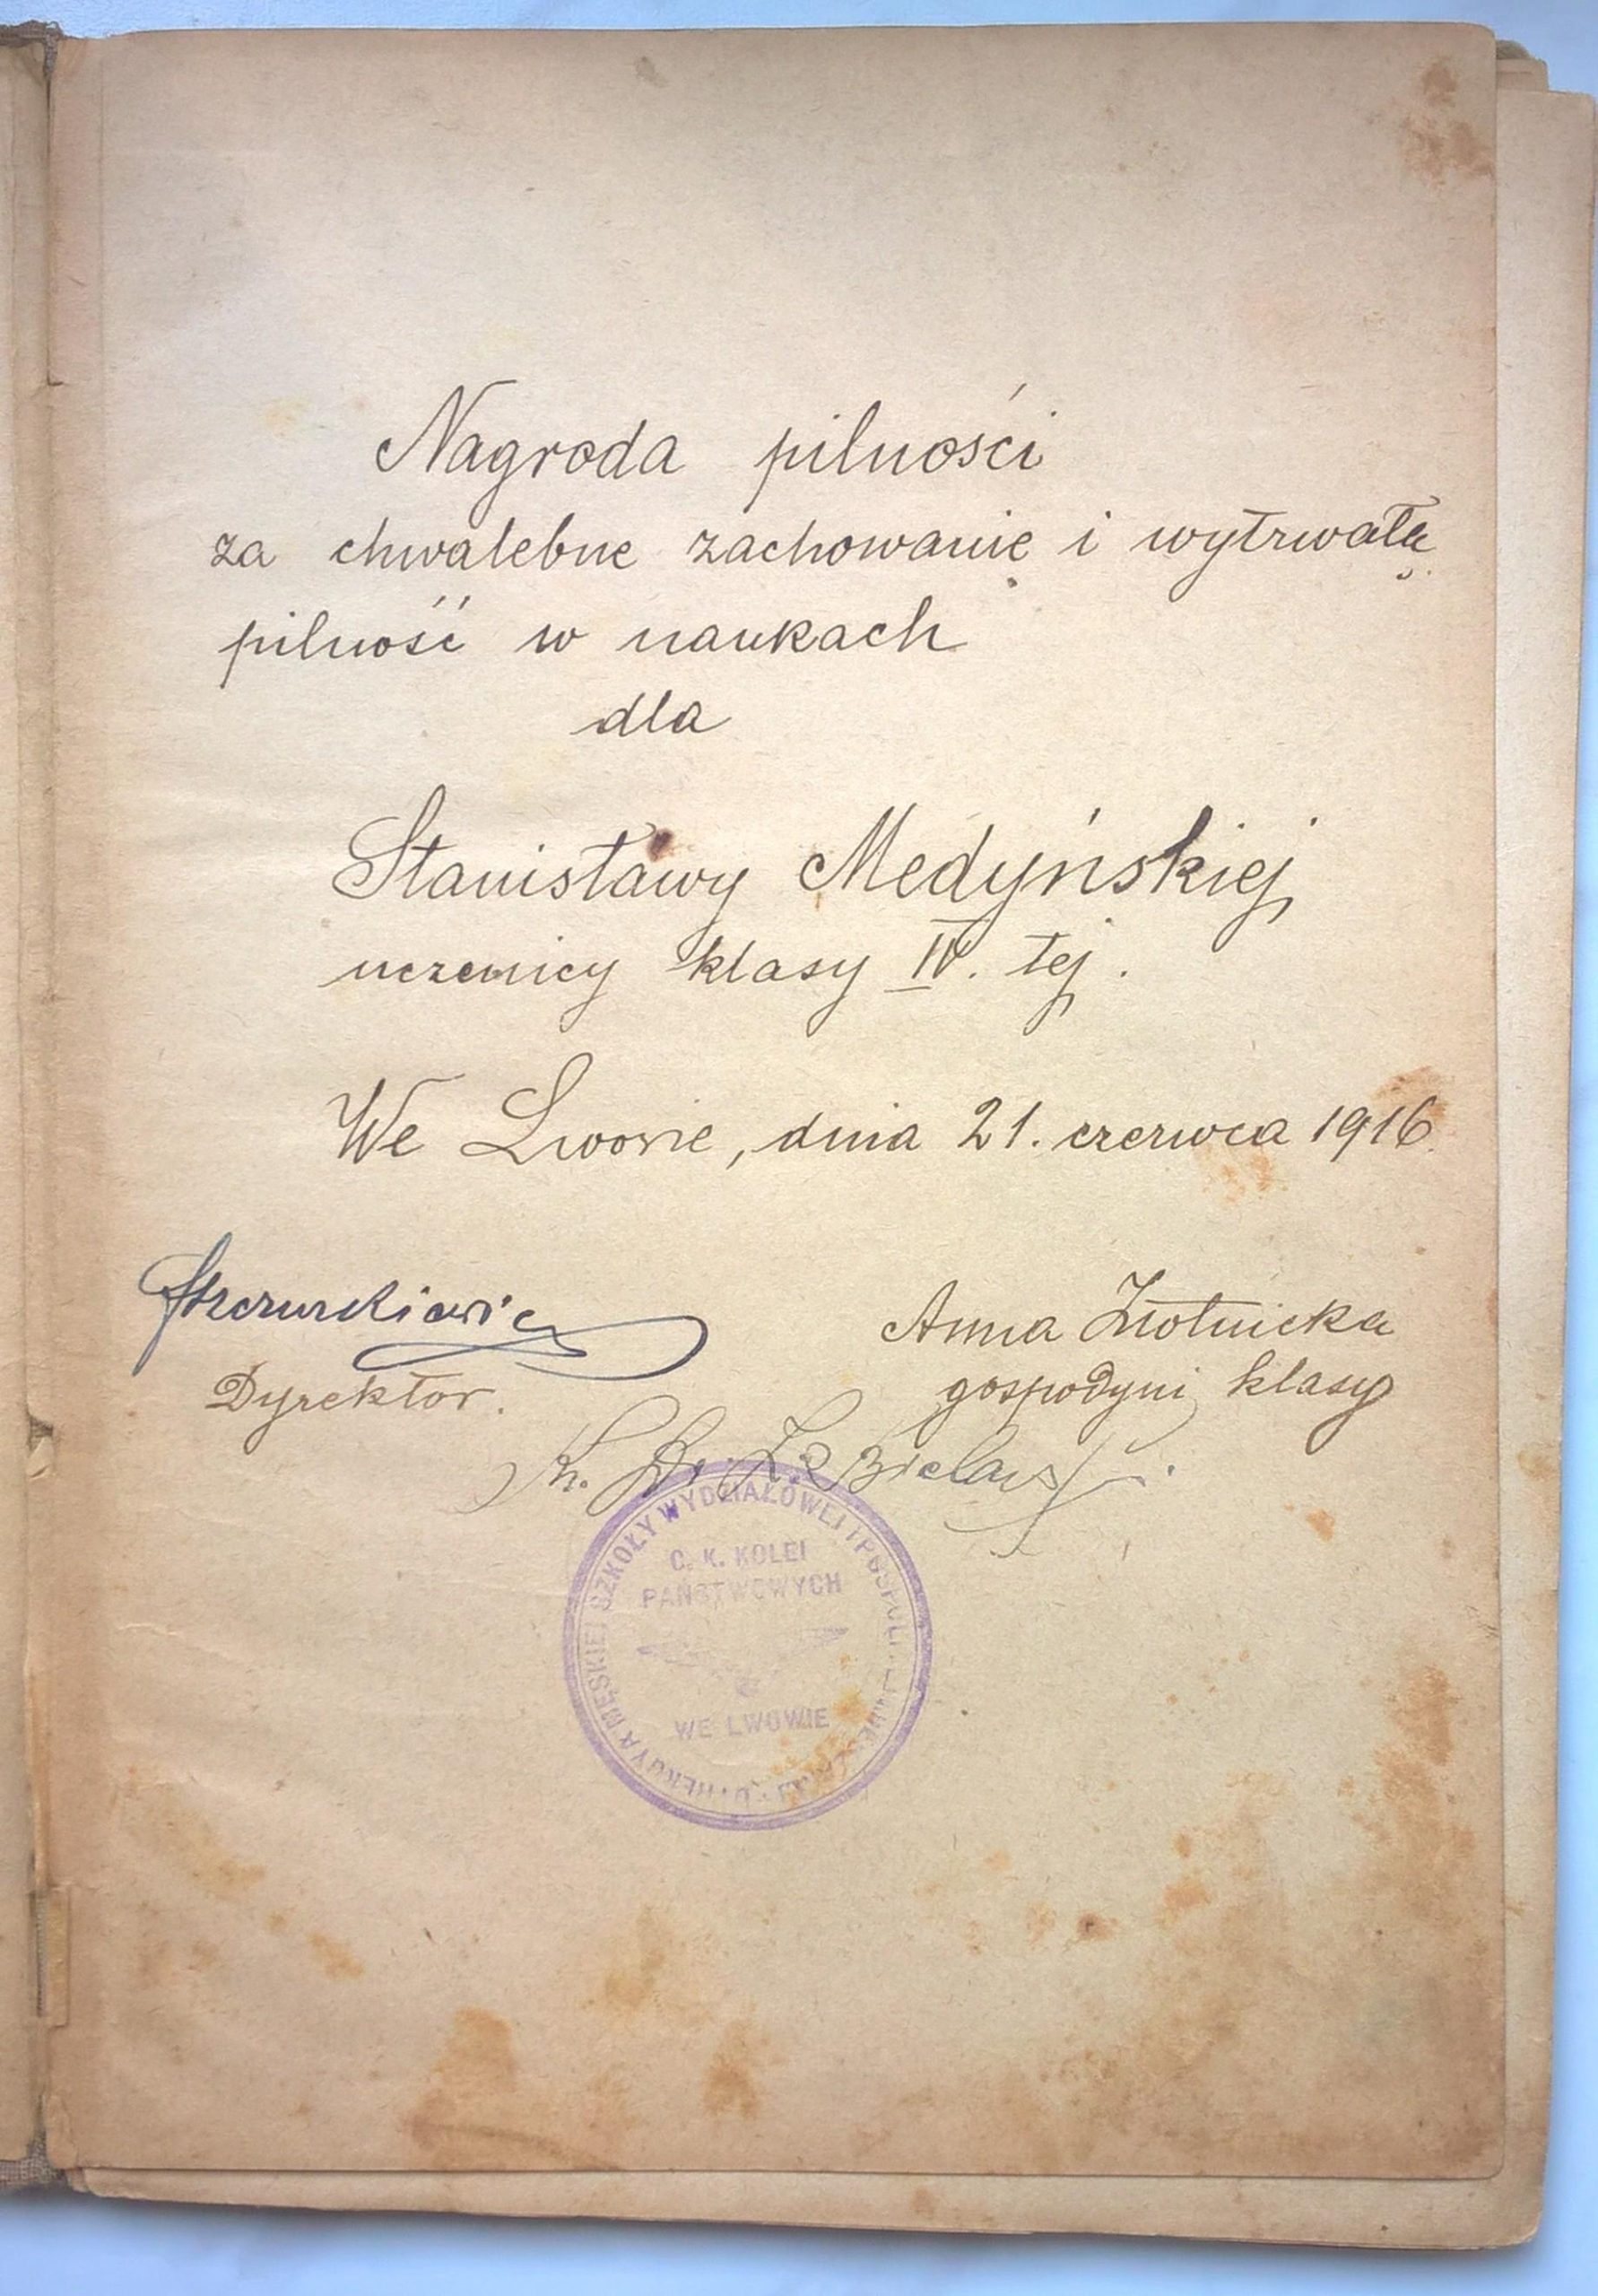 Nagroda pilności
za chwalebne zachowanie i wytrwałą
pilność w naukach
dla
Stanisławy Medyńskiej
uczenicy klasy IV. tej.
We Lwowie, dnia 21. czerwca 1916.
Anna Złotnicka
Dyrektor.
gospodyni klasy
DYREKCYA MĘSKIEJ SZKOŁY WYDZIAŁOWEJ I POSPOLITEJ
C. K. KOLEI
PAŃSTWOWYCH
WE LWOWIE